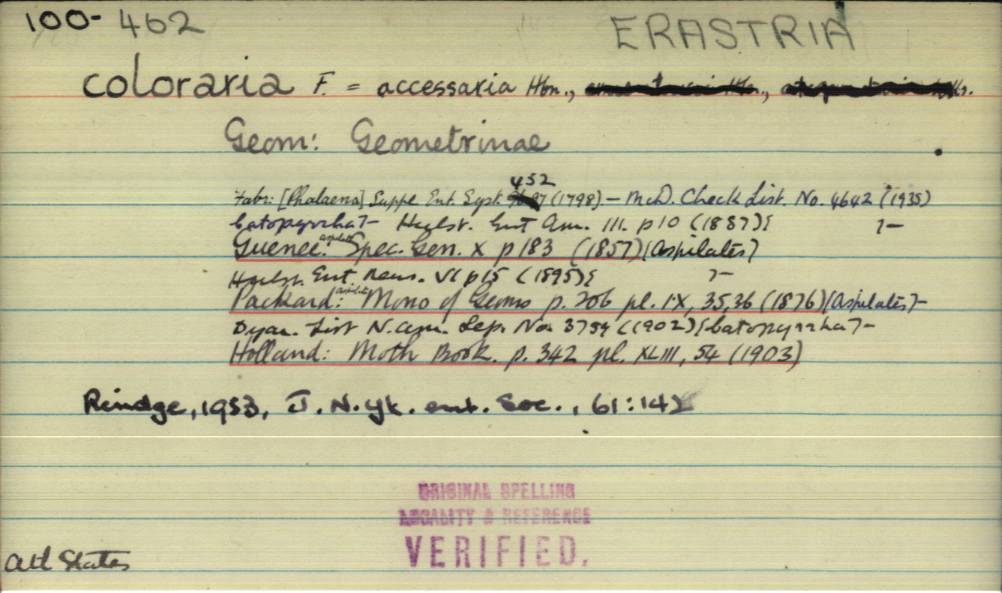 100-462
ERASTRIA
coloraria F. = accessaria Hbn.,
Geom: Geometrinae
452
Fabr: [Phalaena] Suppl. Ent. Syst. (1798) - McD. Check List. No. 4642 (1935)
Catopyrrha] - Hulst. Ent Am. III. p10 (1887)[ ] -
Guenee: Spec. Gen. X p183 (1857)[Aspilates]
Hulst. Ent. News. VI p15 (1895)[ ] -
Packard: Mono of Geoms p. 206 pl. IX, 35,36 (1876)[Aspilates] -
Dyar. List N. Am. Lep. No. 3754 (1902)[Catopyrrha] -
Holland: Moth Book. p. 342 pl. XLIII, 54 (1903)
Rindge, 1953, J. N. Yk. ent. Soc., 61:14
ORIGINAL SPELLING
LOCALITY & REFERENCE
VERIFIED.
Atl States